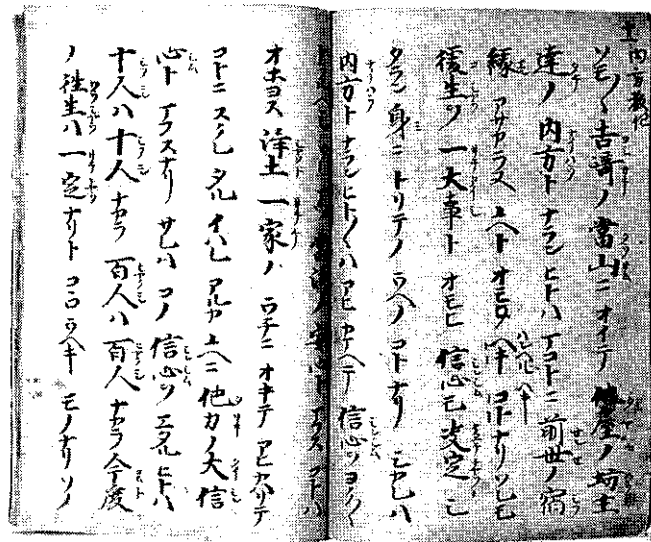 十 内方教化
ソモ〱吉崎ノ當山ニオイテ 多屋ノ坊主
達ノ内方トナランヒトハ マコトニ前世ノ宿
縁アサカラヌユヘトオモフヘキコトナリソレモ
後生ヲ一大事トオモヒ 信心モ決定シ
タラン身ニトリテノウヘノコトナリ シカレハ
内方トナランヒト〱ハ アヒカマヘテ信心ヲヨク〱
安心トマウスコトハ
オホヨス浄土一家ノウチニオキテ アヒカハリテ
コトニスクレタルイハレアルカユヘニ他力ノ大信
心トマウスナリ サレハコノ信心ヲエタルヒトハ
十人ハ十人ナカラ百人ハ百人ナカラ今度
ノ往生ハ一定ナリトコヽロウヘキモノナリソノ